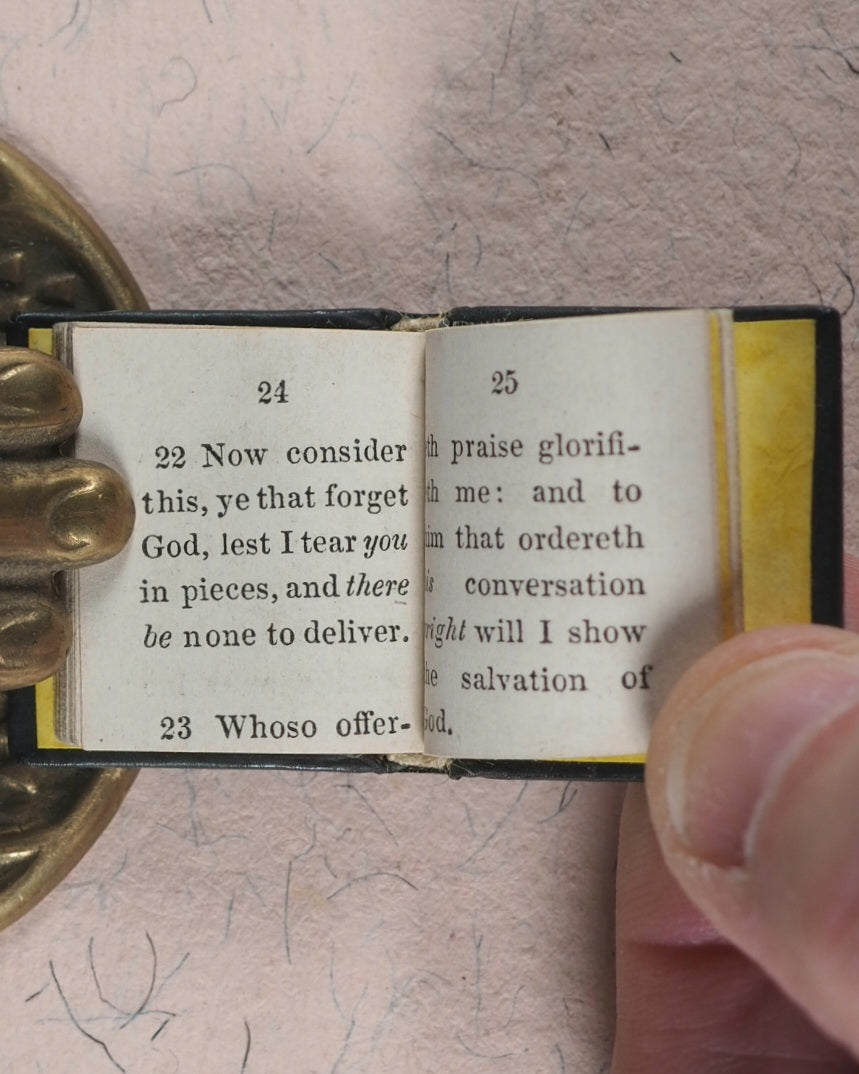 24
22 Now consider
this, ye that forget
God, lest I tear you
in pieces, and there
be none to deliver.
23 Whoso offer-
25
th praise glorifi-
th me: and to
im that ordereth
is conversation
right will I show
he salvation of
God.